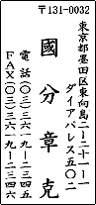 〒131-0032
東京都墨田区東向島二ー二十一ー一
ダイアパレス五〇二
國分章克
電話(〇三)三六一九ー二三四五
FAX(〇三)三六一九ー二三四六